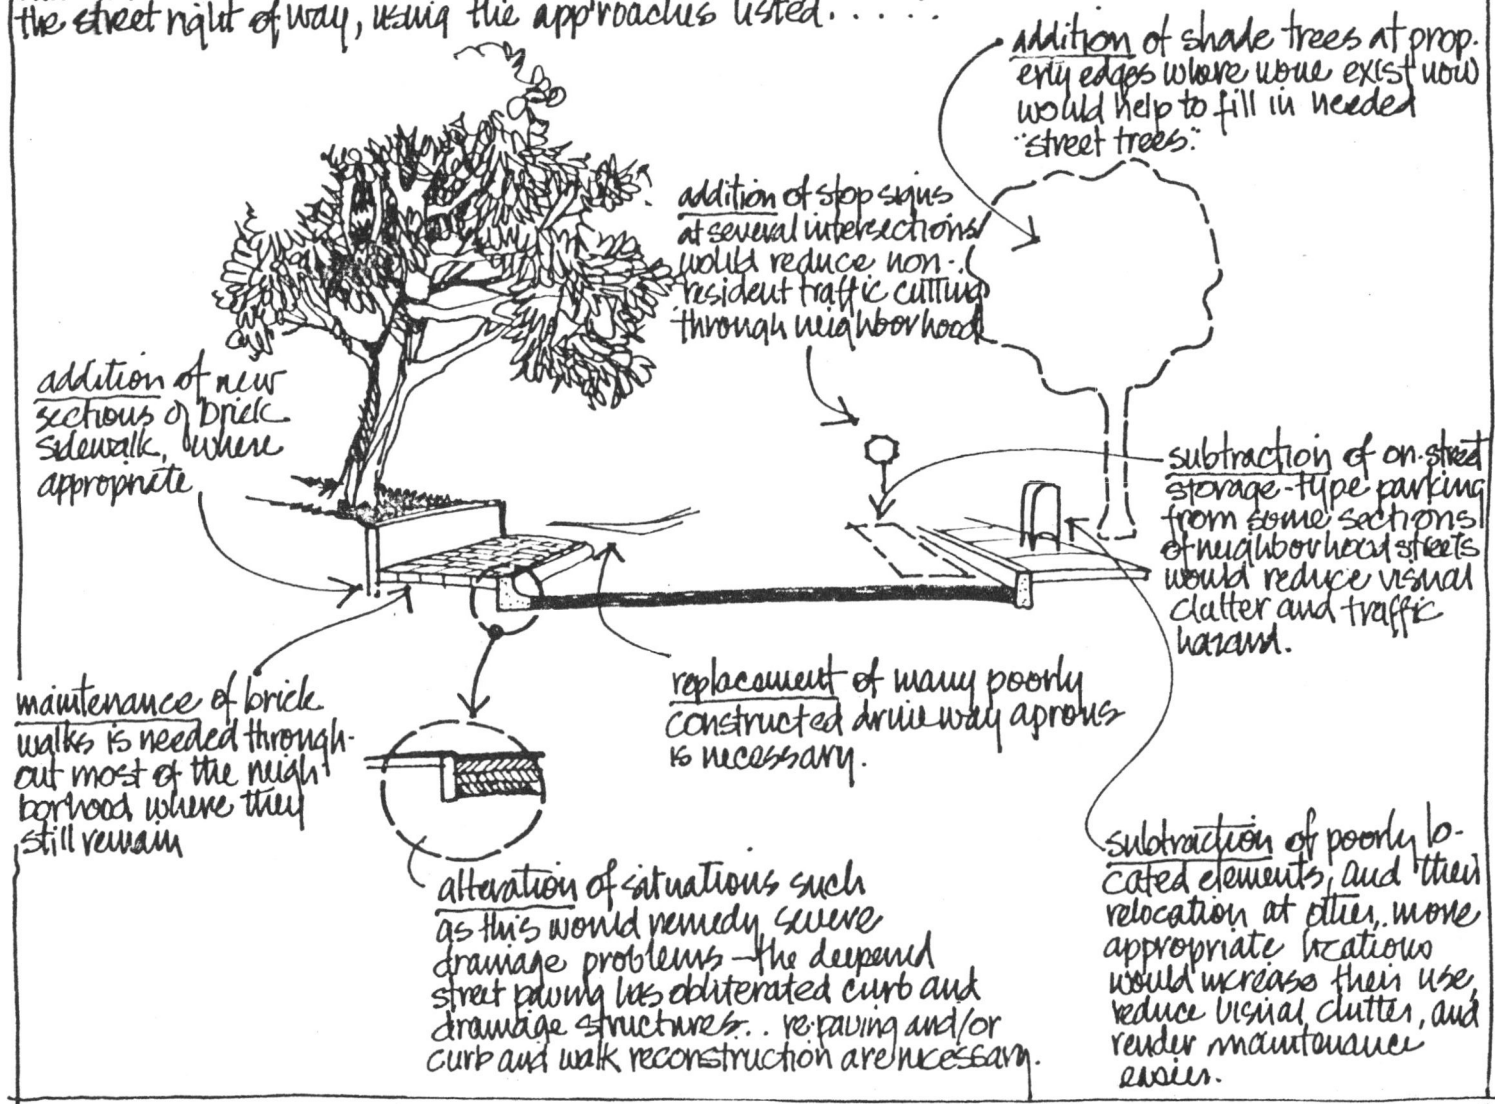 the street right of way, using the approaches listed.....
addition of shade trees at prop-
erty edges where none exist now
would help to fill in needed
"street trees."
addition of stop signs
at several intersections
would reduce non-
resident traffic cutting
through neighborhood
addition of new
sections of brick
sidewalk, where
appropriate
subtraction of on-street
storage-type parking
from some sections
of neighborhood streets
would reduce visual
clutter and traffic
hazard.
maintenance of brick
walks is needed through-
out most of the neigh-
borhood where they
still remain
replacement of many poorly
constructed driveway aprons
is necessary.
alteration of situations such
as this would remedy severe
drainage problems—the deepened
street paving has obliterated curb and
drainage structures.. re-paving and/or
curb and walk reconstruction are necessary.
subtraction of poorly lo-
cated elements, and their
relocation at other, more
appropriate locations
would increase their use,
reduce visual clutter, and
render maintenance
easier.